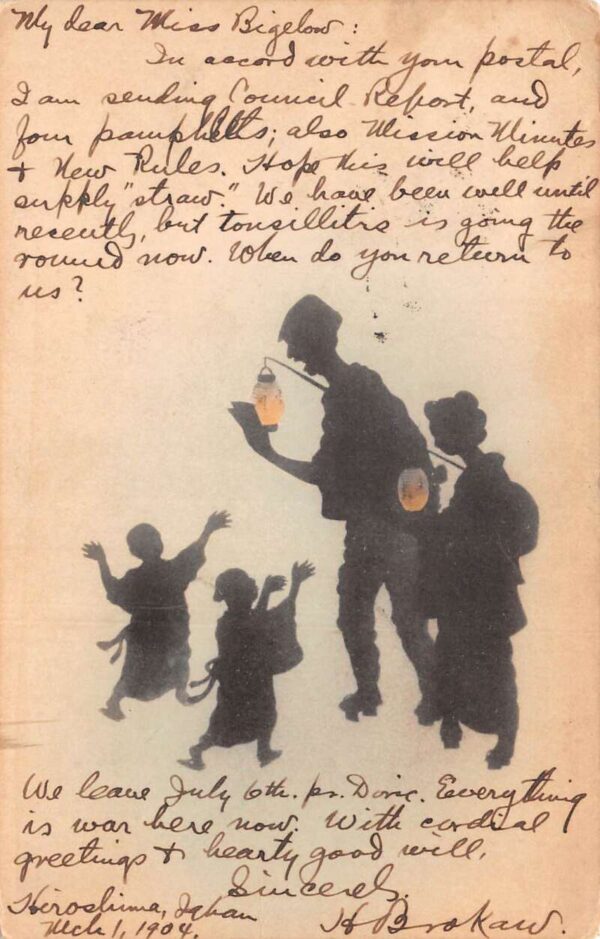 My dear Miss Bigelow:
In accord with your postal,
I am sending Council Report, and
four pamphlets; also Mission Minutes
+ New Rules. Hope this will help
supply "straw." We have been well until
recently, but tonsillitis is going the
round now. When do you return to
us?
We leave July 6th. pr. Doric. Everything
is war here now. With cordial
greetings & hearty good will,
Sincerely,
H Brokaw.
Hiroshima, Japan
Mch 1, 1904.